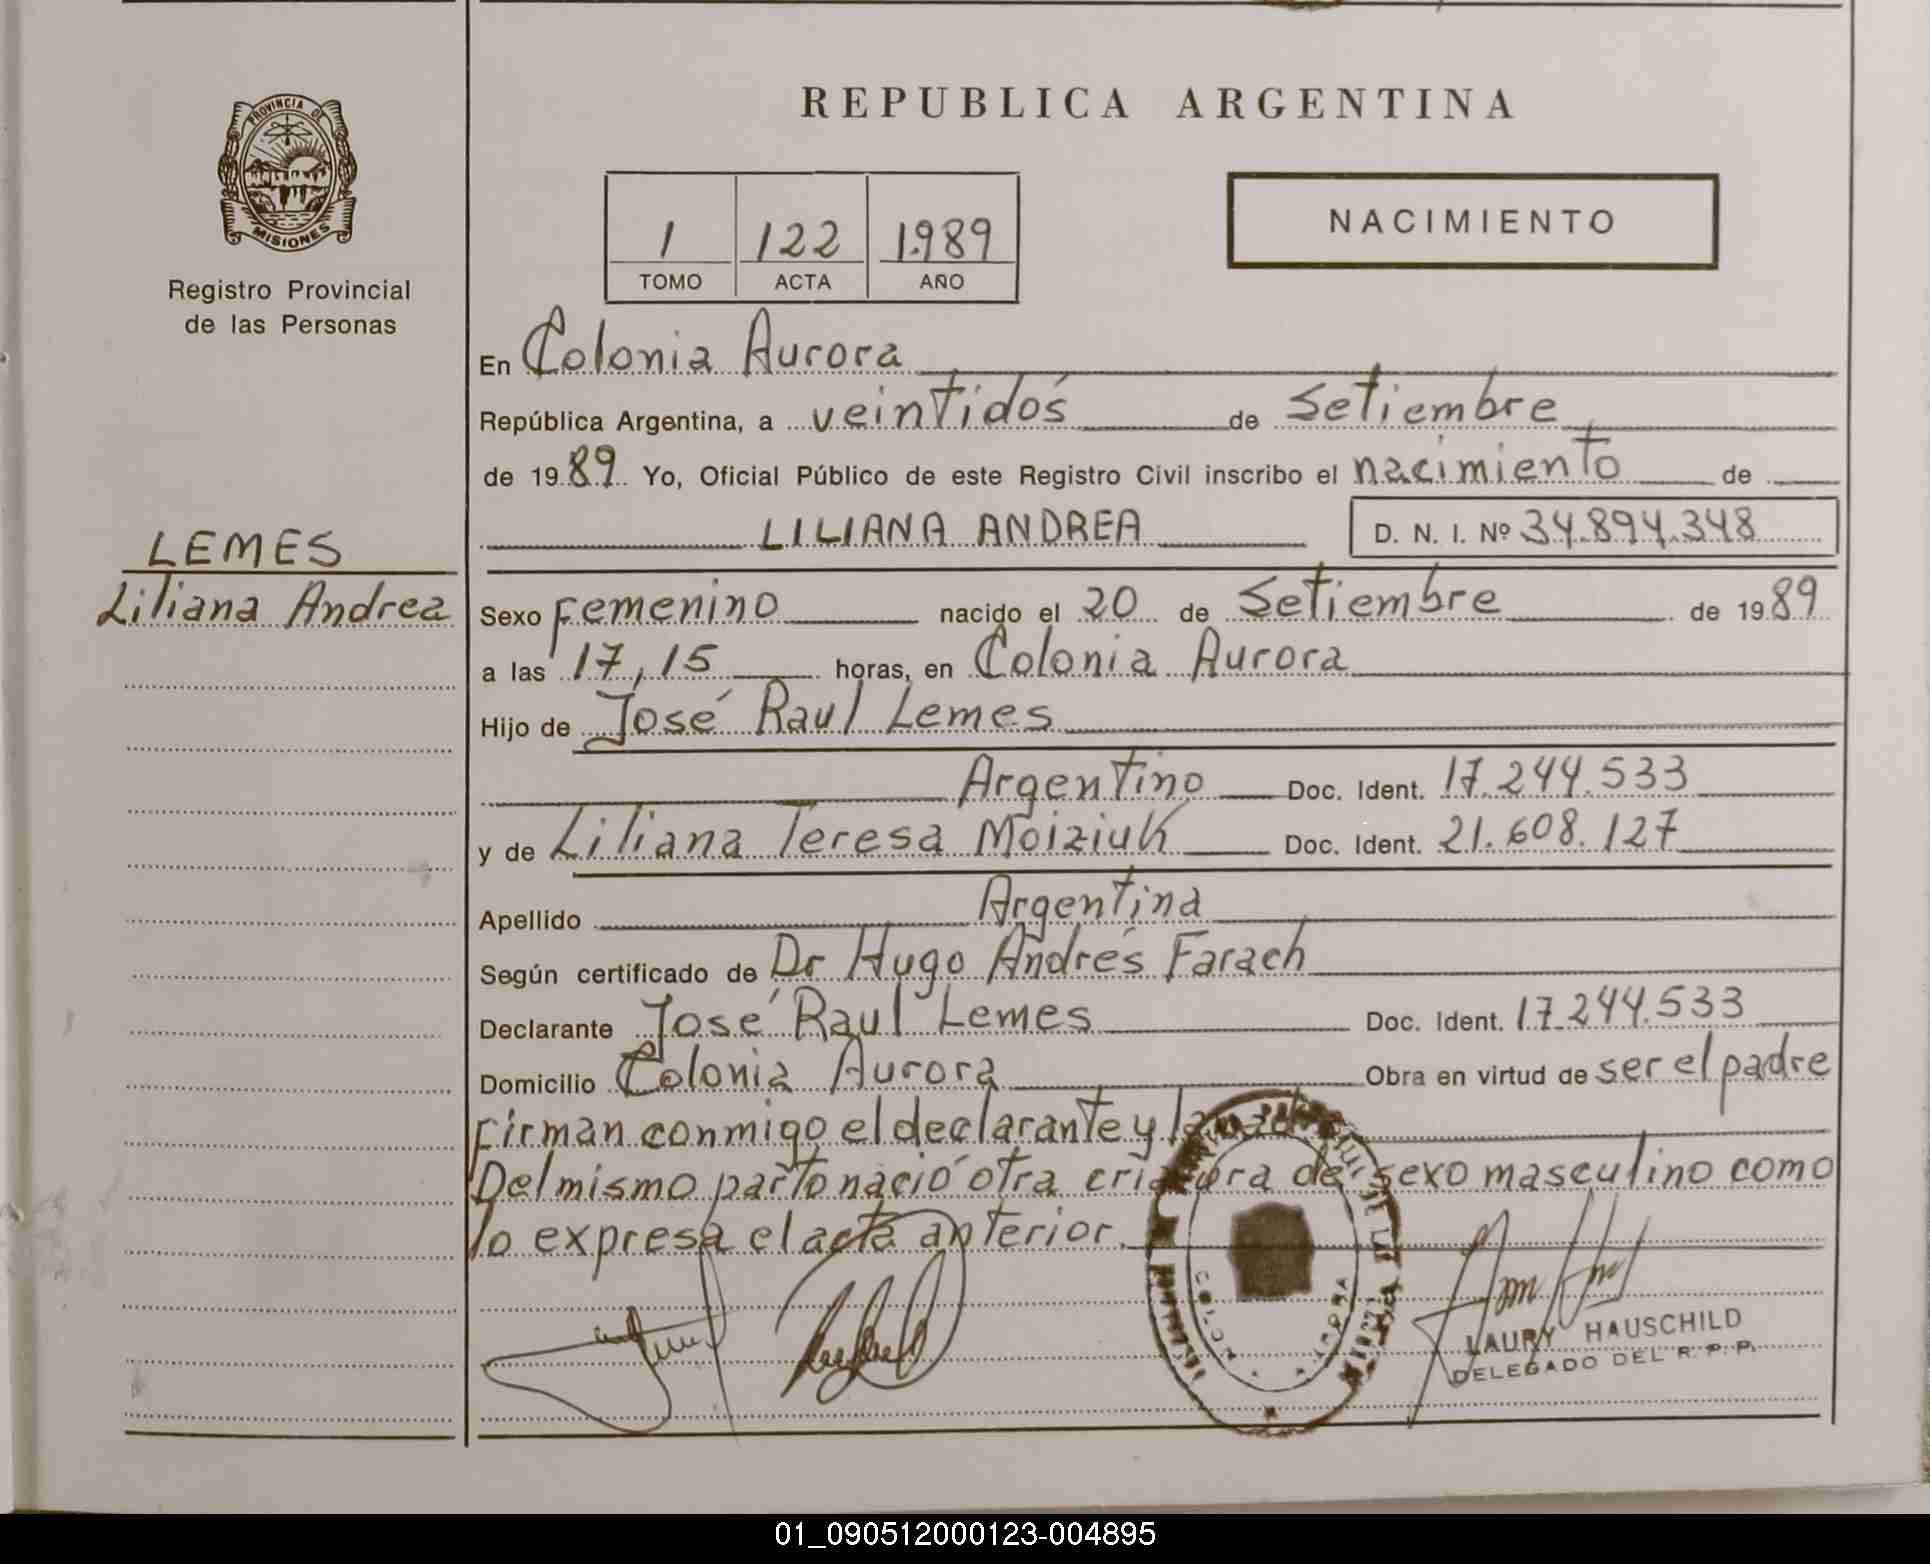 REPUBLICA ARGENTINA
PROVINCIA DE
MISIONES
Registro Provincial
de las Personas
1 122 1.989
TOMO ACTA AÑO
NACIMIENTO
En Colonia Aurora
República Argentina, a veintidós de Setiembre
de 1989 Yo, Oficial Público de este Registro Civil inscribo el nacimiento de
LILIANA ANDREA D. N. I. Nº 34.894.348
LEMES
Liliana Andrea
Sexo Femenino nacido el 20 de Setiembre de 1989
a las 17,15 horas, en Colonia Aurora
Hijo de José Raul Lemes
Argentino Doc. Ident. 17.244.533
y de Liliana Teresa Moiziuk Doc. Ident. 21.608.127
Apellido Argentina
Según certificado de Dr Hugo Andrés Farach
Declarante José Raul Lemes Doc. Ident. 17.244.533
Domicilio Colonia Aurora Obra en virtud de ser el padre
Firman conmigo el declarante y la
Del mismo parto nació otra criatura de sexo masculino como
lo expresa el acta anterior.
LAURY HAUSCHILD
DELEGADO DEL R.P.P.
01_090512000123-004895